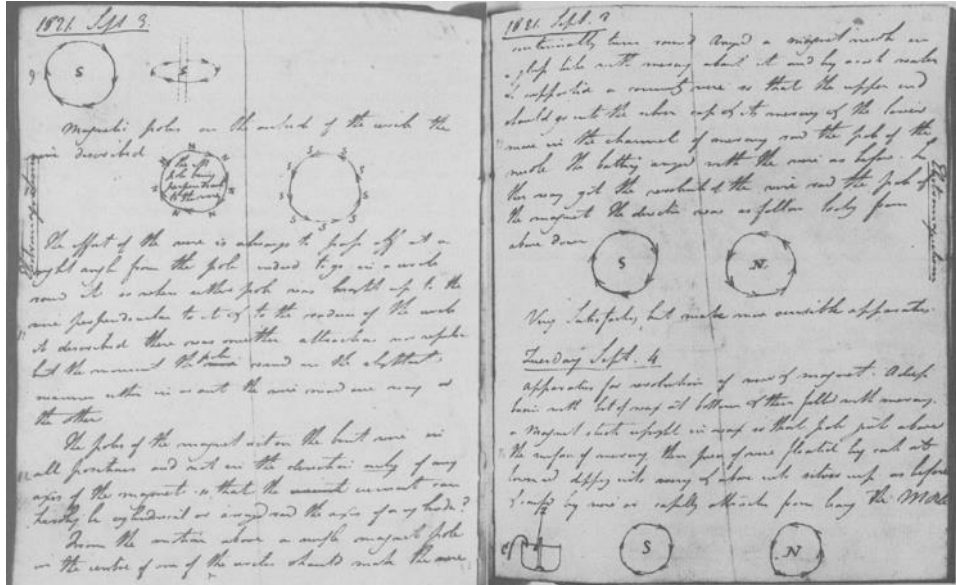 1821. Sept 3.
S
S
Magnetic poles on the outside of the circle the
wire described
N N N N N N N N N N
the
pole being
perpendicular
to the wire
S S S S S S S S
The effort of the wire is always to pass off at a
right angle from the pole indeed to go in a circle
round it so when either pole was brought up to the
wire perpendicular to it & to the radius of the circle
it described there was neither attraction nor repulsion
but the moment the pole varied in the slightest
manner either in or out the wire moved one way or
the other
The poles of the magnet act on the bent wire in
all positions and not in the direction only of any
axis of the magnet so that the current can
hardly be cylindrical or arranged round the axis of a cylinder?
From the motion above a single magnet pole
in the centre of one of the circles should make the wire
Electromagnetism
1821. Sept. 3
continually turn round. Arranged a magnet needle in
a glass tube with mercury about it and by a cork water
&c supported a connecting wire so that the upper end
should go into the silver cup & its mercury & the lower
move in the channel of mercury round the pole of the
needle. The battery arranged with the wire as before. In
this way got the revolution of the wire round the pole of
the magnet. The direction was as follows looking from
above down
S
N
Very Satisfactory, but make more sensible apparatus.
Tuesday Sept. 4
Apparatus for revolution of wire & magnet. A deep
basin with bit of wax at bottom & then filled with mercury.
a Magnet stuck upright in wax so that pole just above
the surface of mercury then piece of wire floated by cork at
lower end dipping into mercury & above into silver cup as before
S
N
Electromagnetism